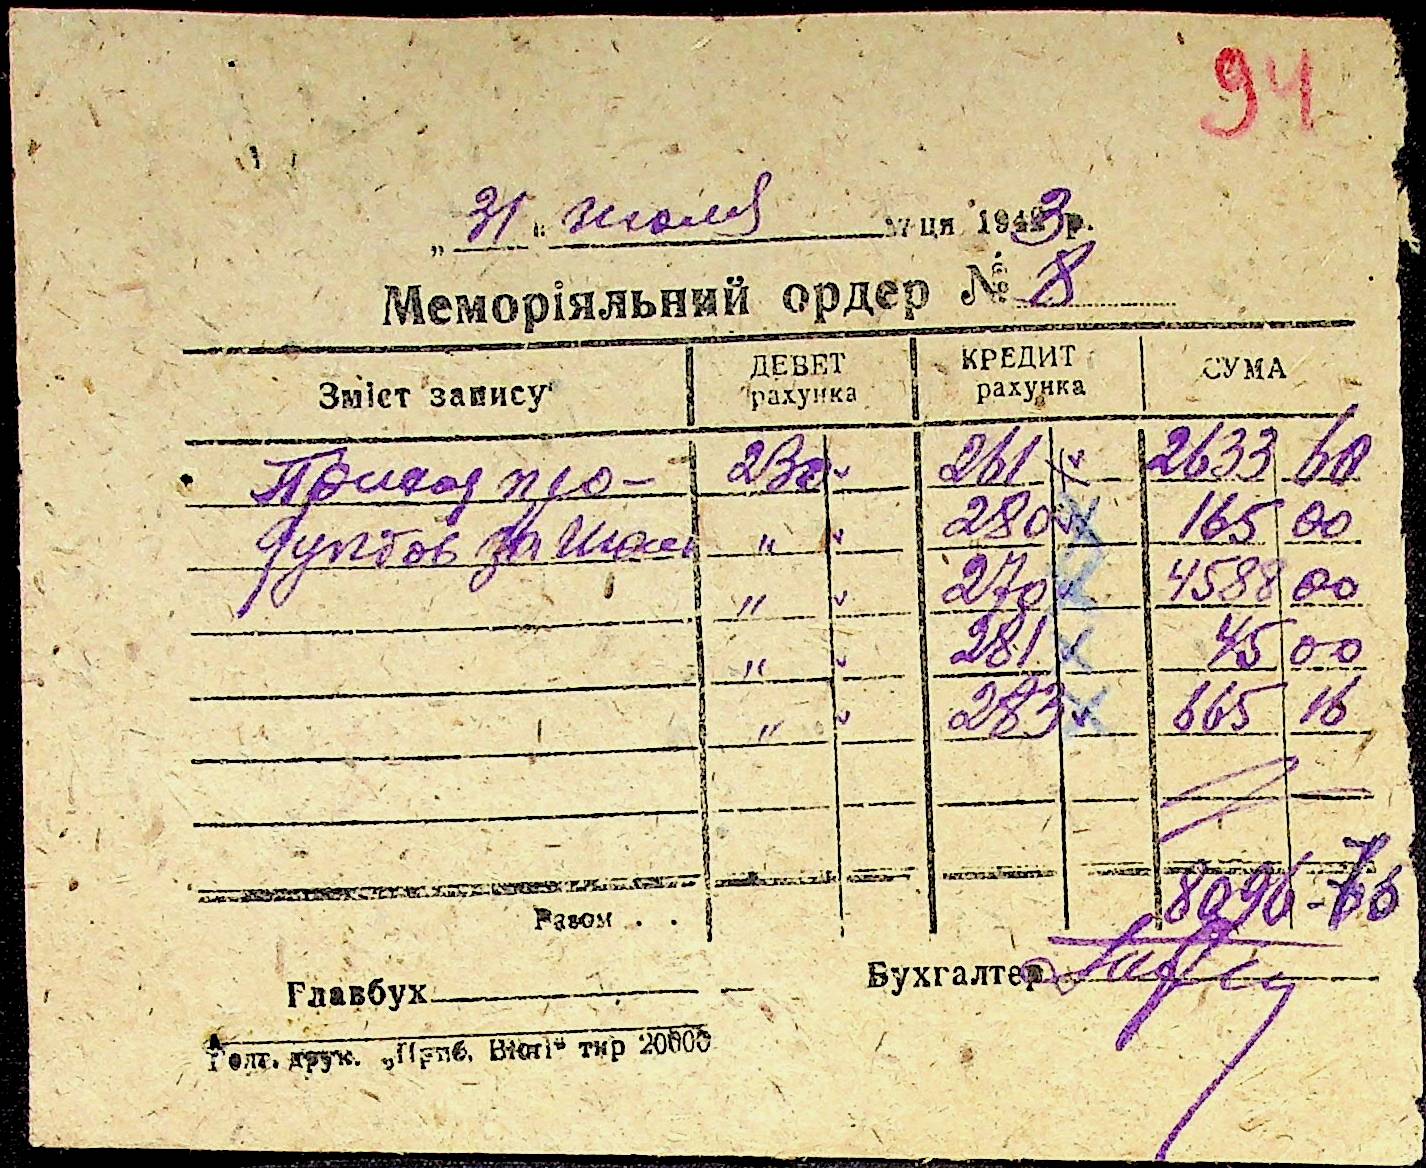 94
„31" июля м-ця 1943 р.
Меморіяльний ордер № 8
Зміст запису ДЕБЕТ рахунка КРЕДИТ рахунка СУМА
Приход про- 230 261 2633 60
дуктов за июль " 280 165 00
" 270 4588 00
" 281 45 00
" 283 665 16
Разом . . 8096-76
Главбух Бухгалтер
друк. „Приб. Вісті" тир 20000